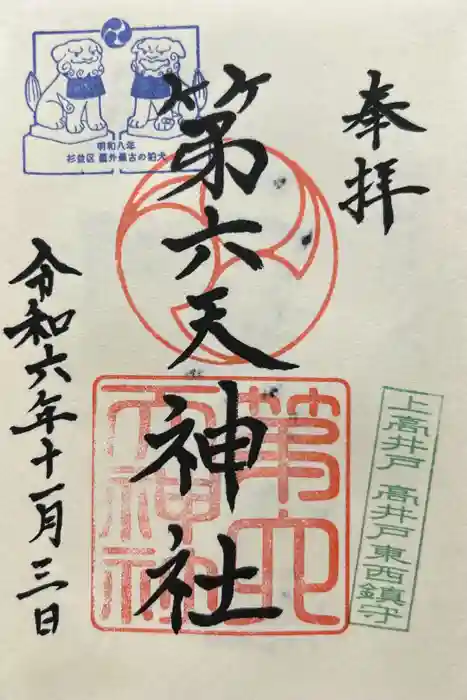 奉拝
第六天神社
令和六年十一月三日
明和八年
杉並区 屋外最古の狛犬
上高井戸 高井戸東西鎮守
第六
天神社